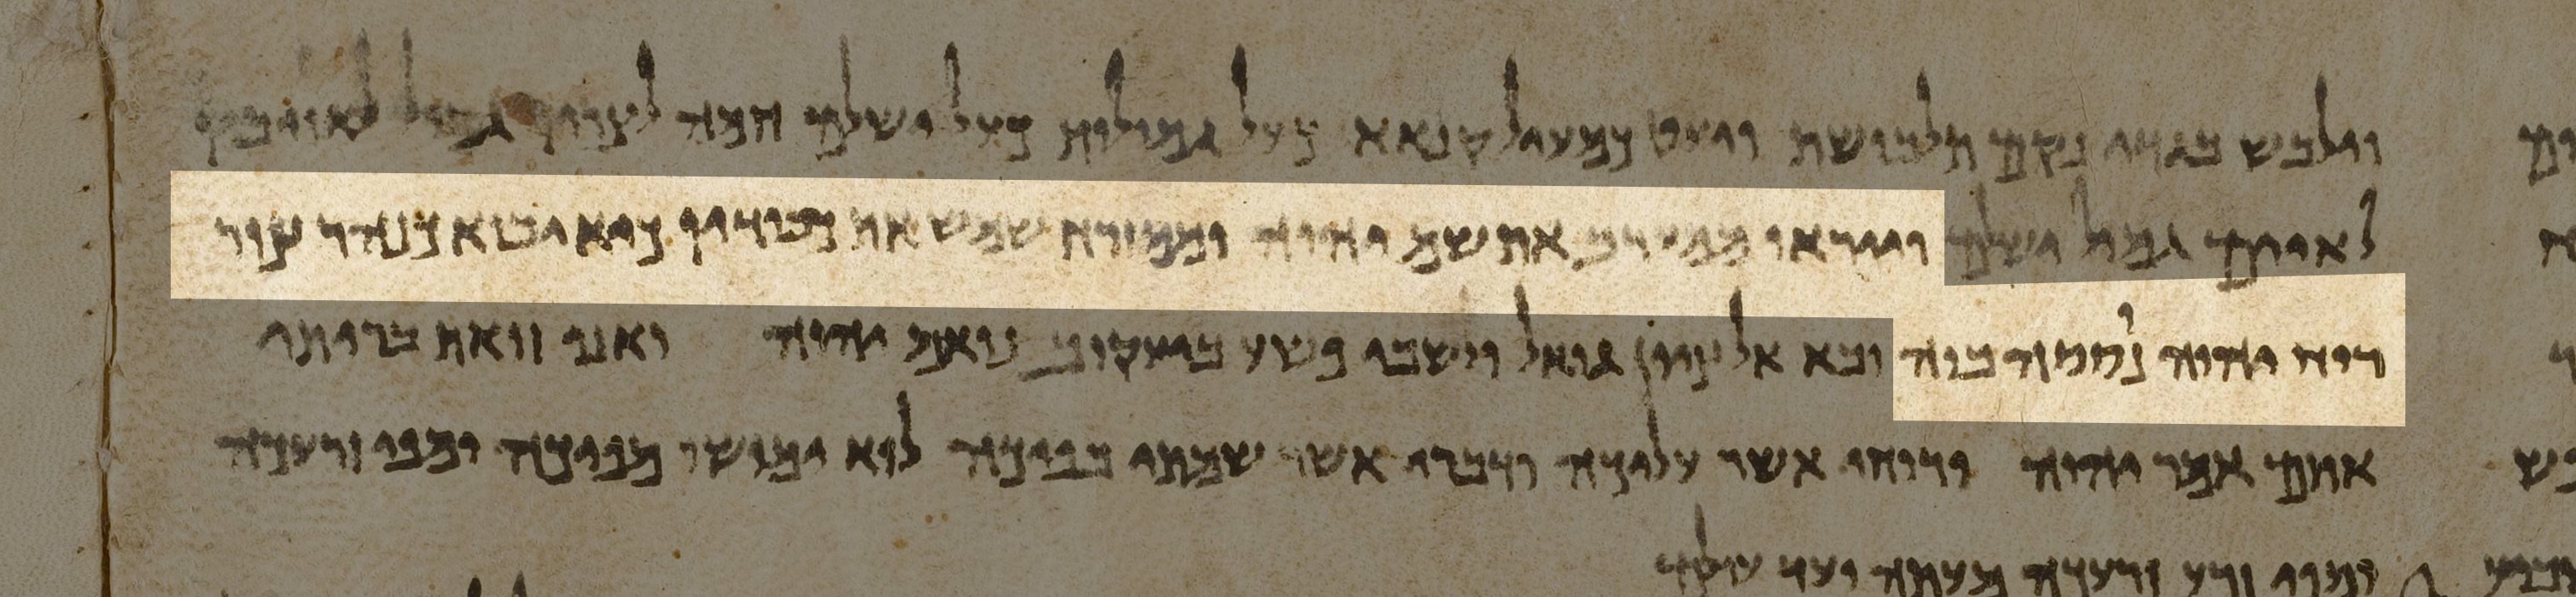 וילבש בגדי נקם תלבושת ויעט כמעיל קנאא כעל גמולות כעל ישלם חמה לצריו גמול לאויביו
לאיים גמול ישלם וייראו ממערב את שם יהוה וממזרח שמש את כבודיו כיא יבוא כנהר צור
רוח יהוה נססה בוה ובא אל ציון גואל וישבי פשע ביעקוב נואם יהוה ואני זואת בריתי
אותם אמר יהוה ורוחי אשר עליכה ודברי אשר שמתי בפיכה לוא ימושו מפיכה ומפי זרעכה
ומפי זרע זרעכה מעתה ועד עולם